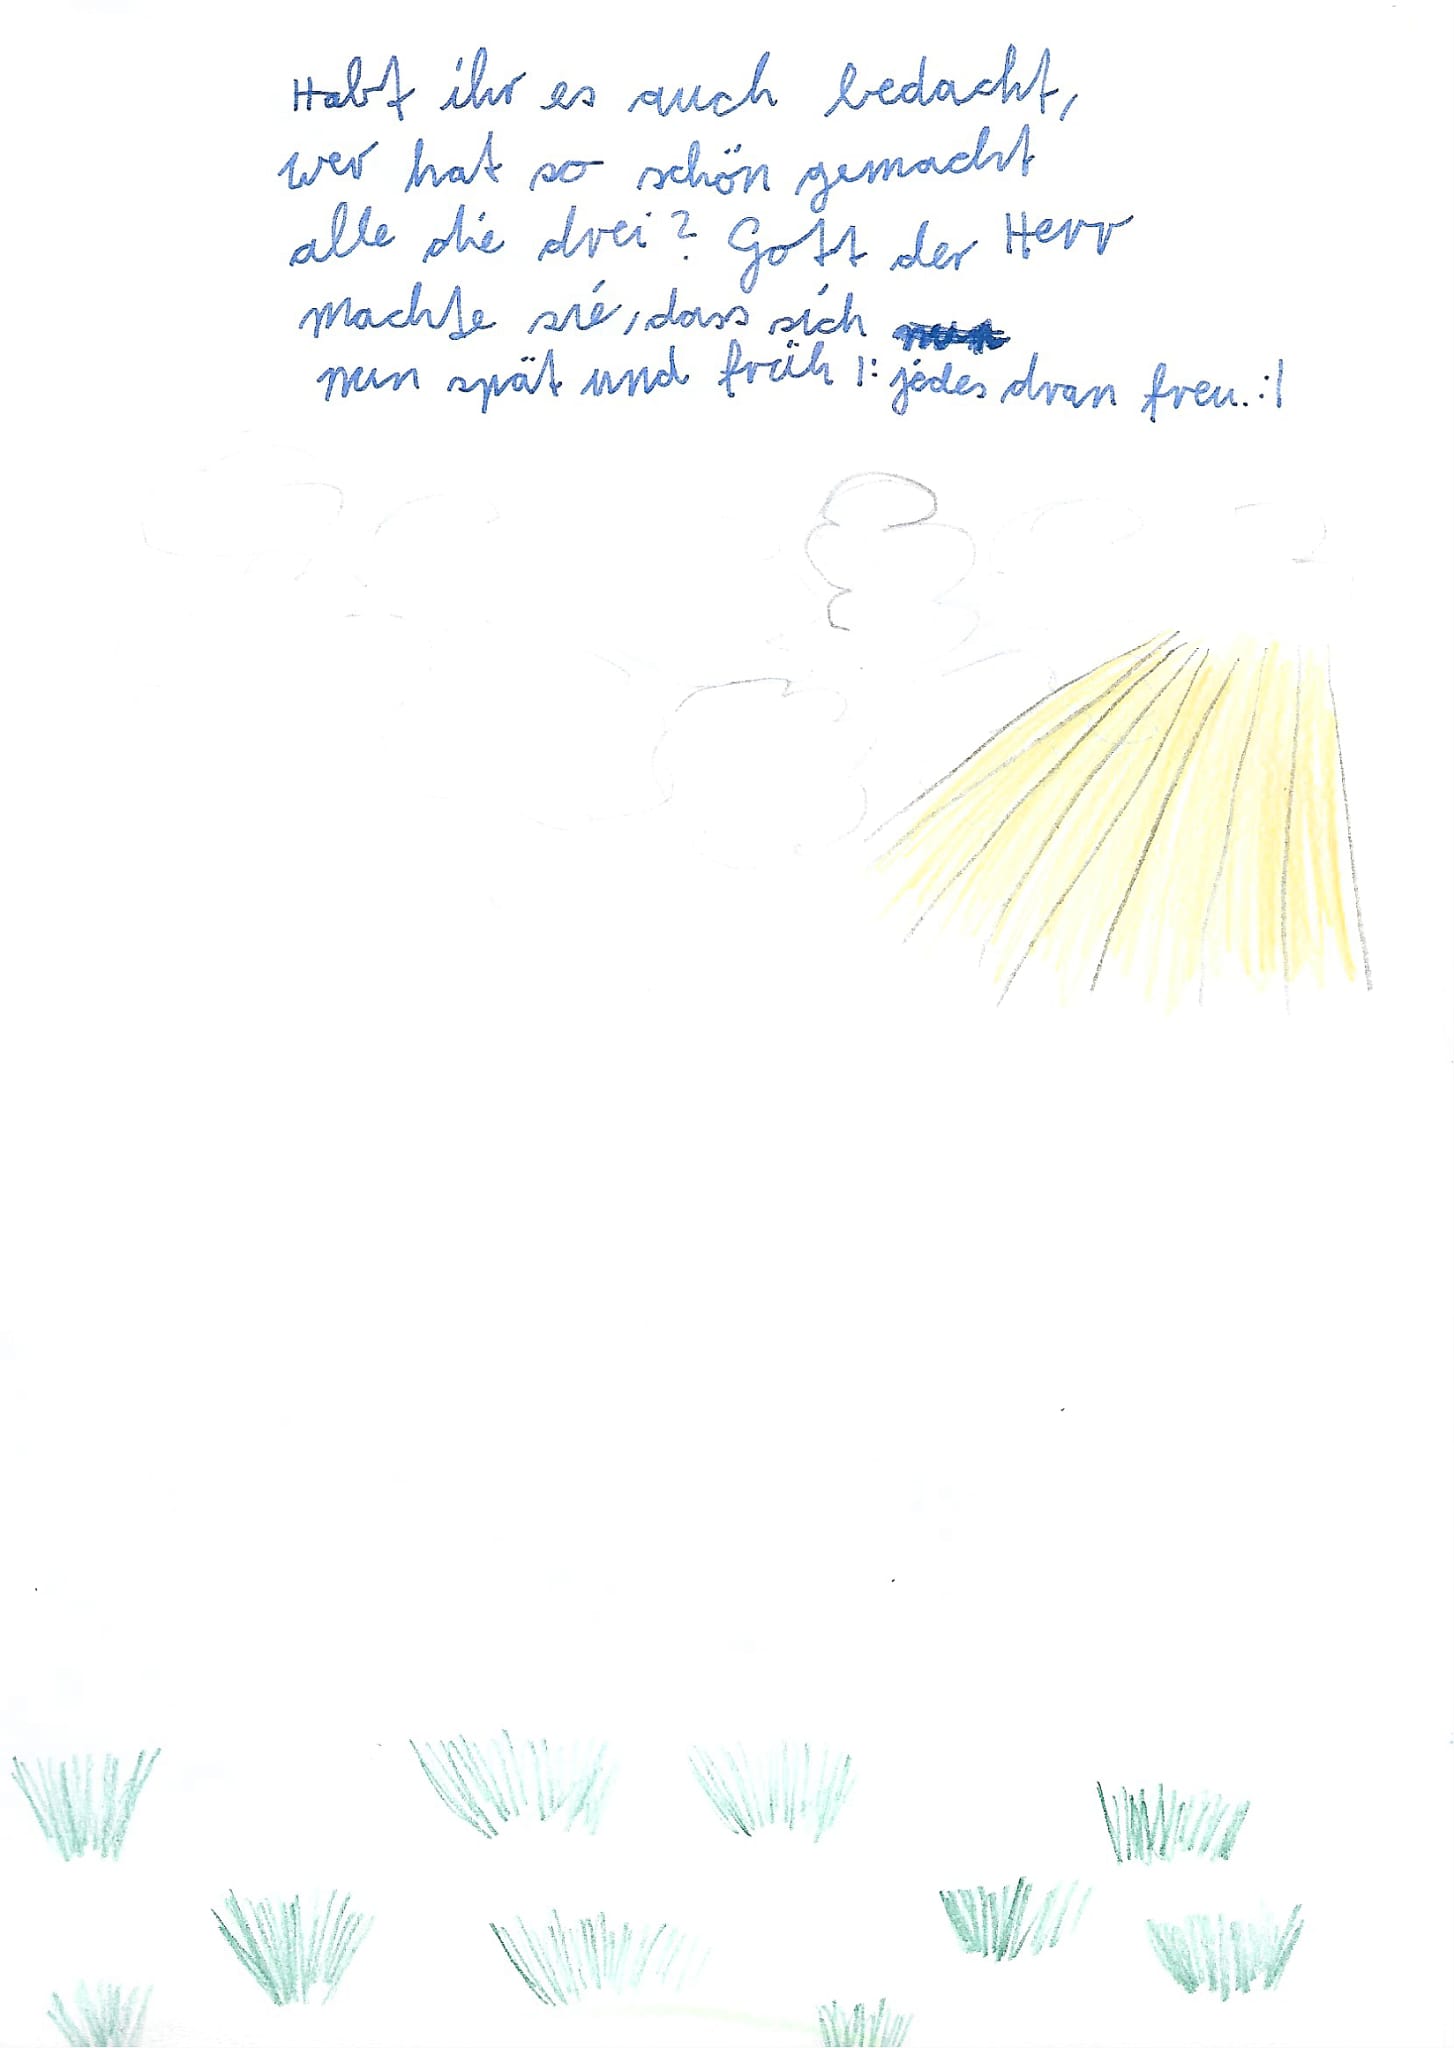 Habt ihr es auch bedacht,
wer hat so schön gemacht
alle die drei? Gott der Herr
machte sie, dass sich
nun spät und früh |: jedes dran freu. :|